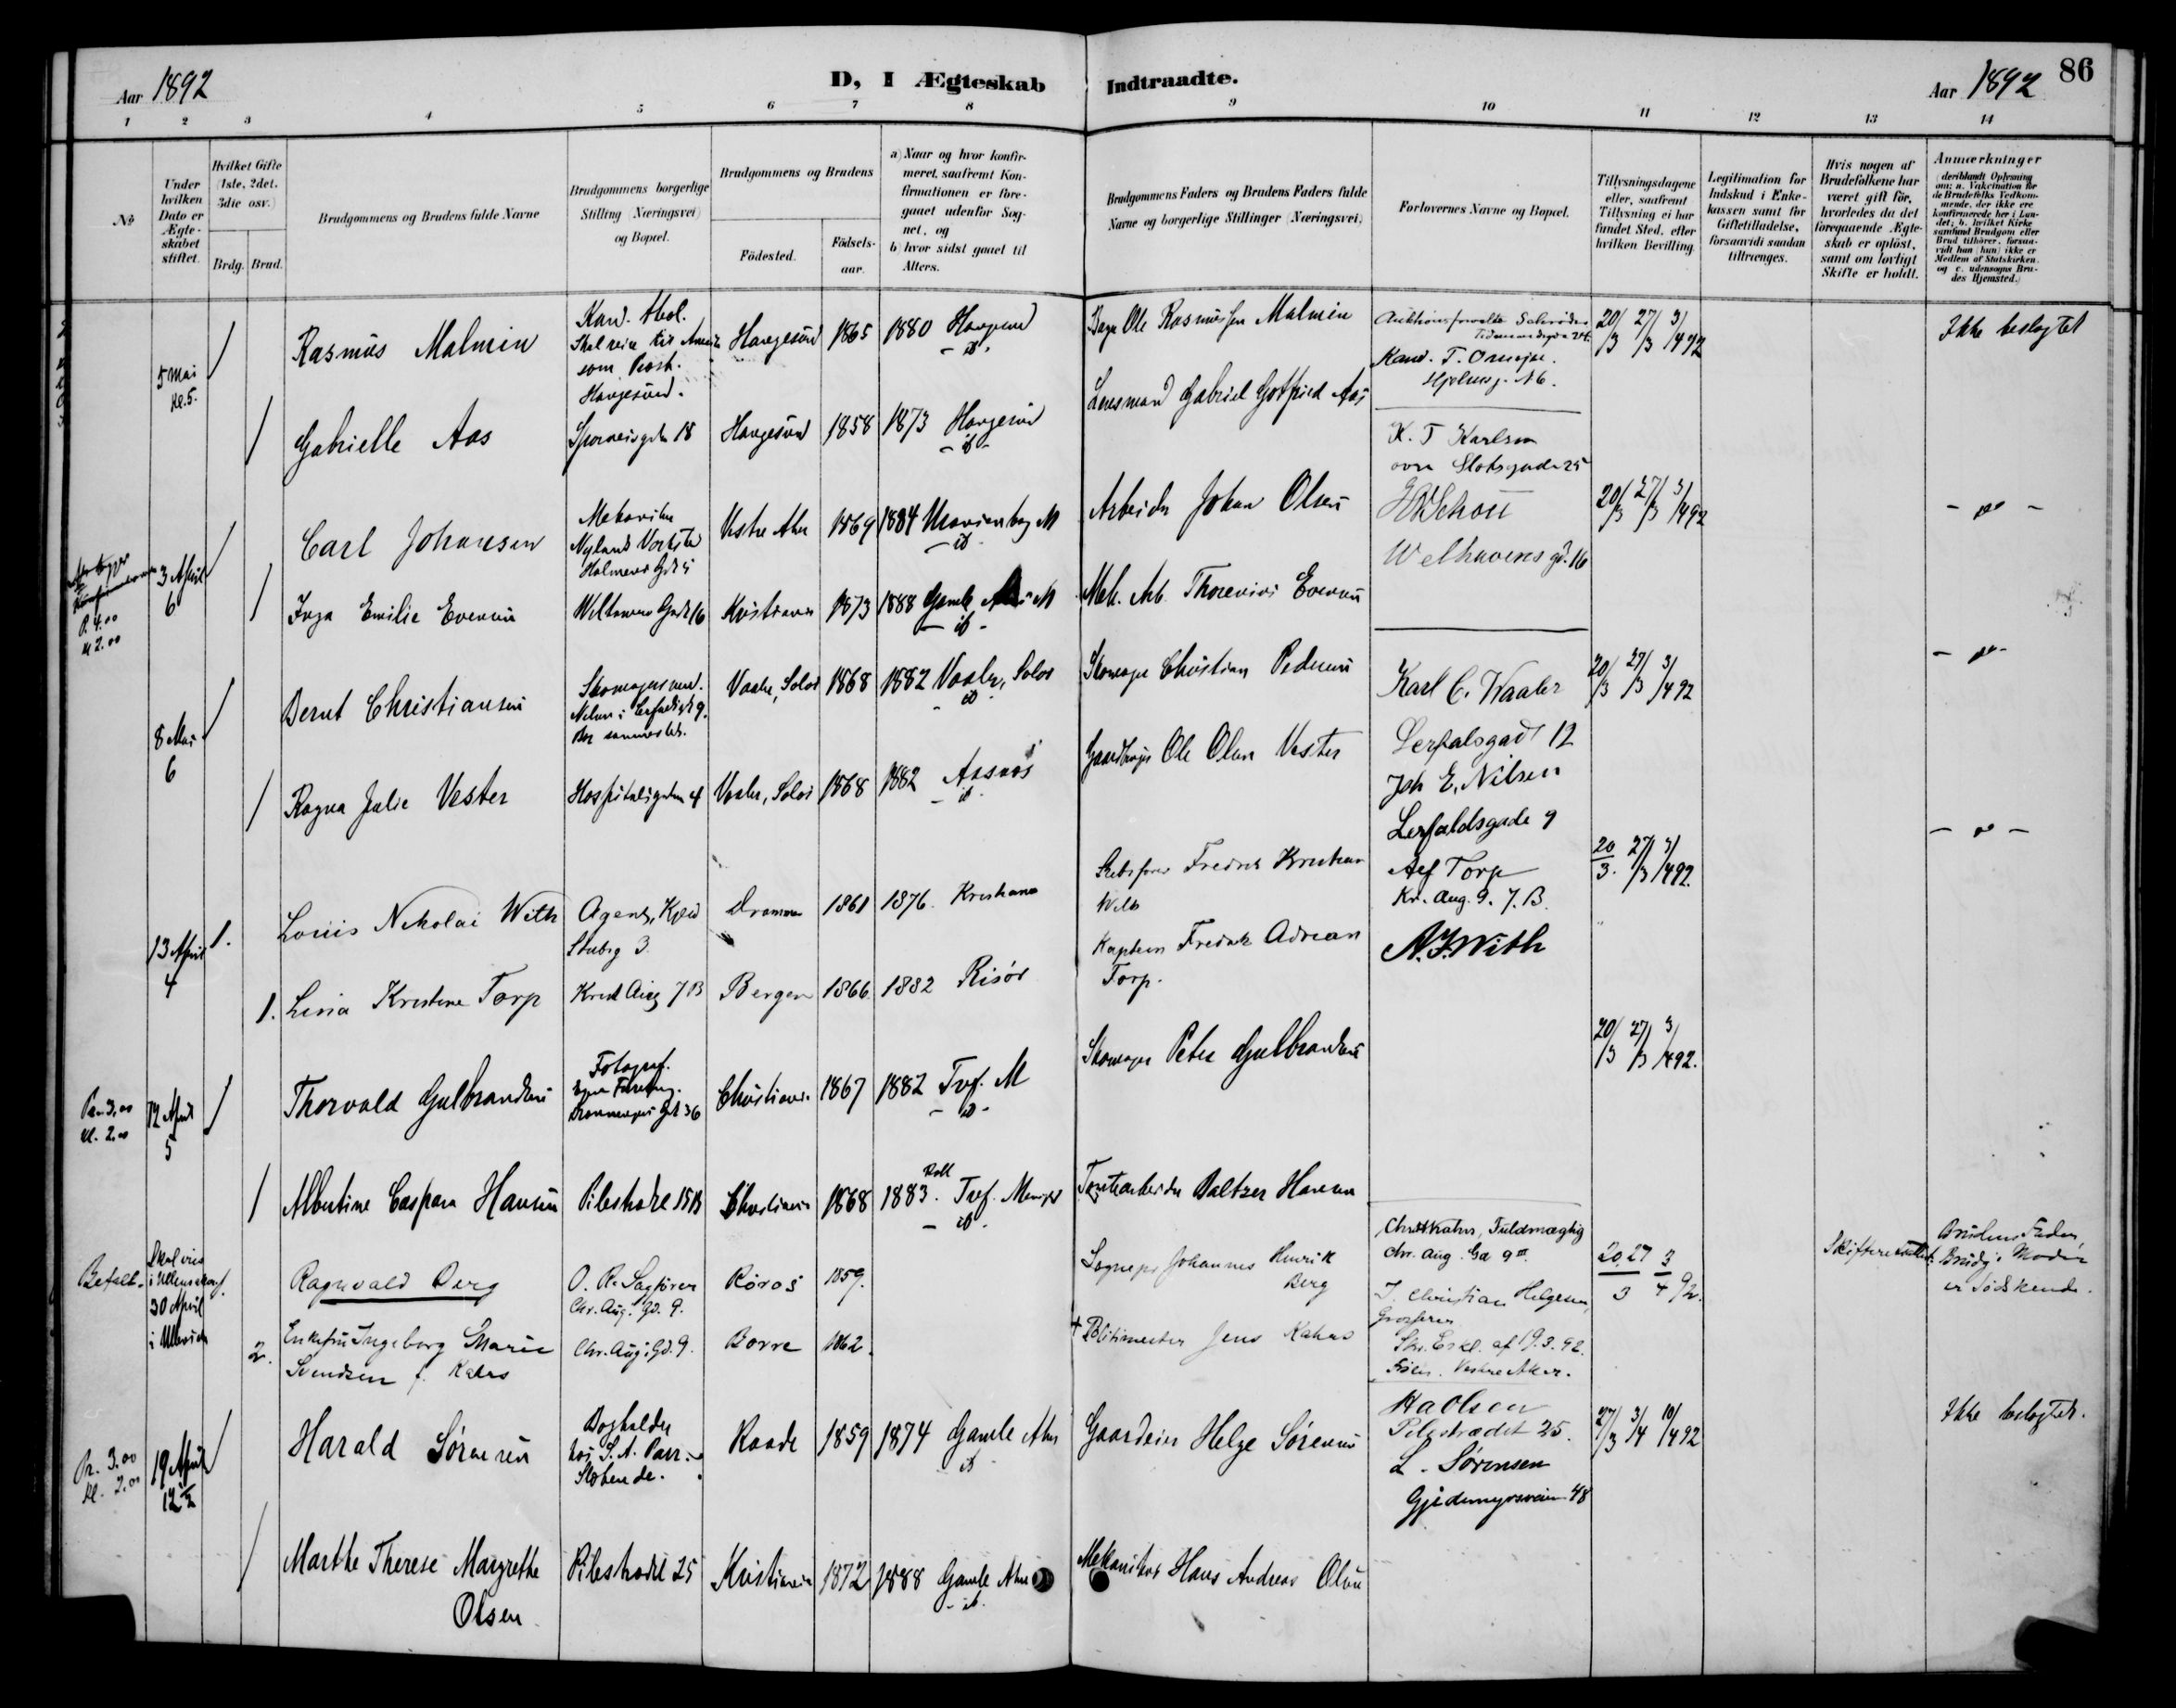 Aar 1892
D, I Ægteskab Indtraadte.
Aar 1892
86
1 2 3 4 5 6 7 8 9 10 11 12 13 14
No
Under hvilken Dato er Ægteskabet stiftet.
Hvilket Gifte (1ste, 2det, 3die osv.)
Brdg. Brud.
Brudgommens og Brudens fulde Navne
Brudgommens borgerlige Stilling (Næringsvei) og Bopæl.
Brudgommens og Brudens
Födested.
Födselsaar.
a) Naar og hvor konfirmeret, saafremt Konfirmationen er foregaaet udenfor Sognet, og
b) hvor sidst gaaet til Alters.
Brudgommens Faders og Brudens Faders fulde Navne og borgerlige Stillinger (Næringsvei)
Forlovernes Navne og Bopæl.
Tillysningsdagene eller, saafremt Tillysning ei har fundet Sted, efter hvilken Bevilling.
Legitimation for Indskud i Enkekassen samt for Giftetilladelse, forsaavidt saadan tiltrænges.
Hvis nogen af Brudefolkene har været gift för, hvorledes da det foregaaende Ægteskab er oplöst, samt om lovligt Skifte er holdt.
Anmærkninger (deriblandt Oplysning om: a. Vakcination for de Brudefolks Vedkommende, der ikke ere konfirmerede her i Landet; b. hvilket Kirkesamfund Brudgom eller Brud tilhörer, forsaavidt han (hun) ikke er Medlem af Statskirken. og c. udensogns Brudes Hjemsted.)
5 Mai Kl. 5.
/ Rasmus Malmin
Kand. theol.
Skal reise til Amerika
som Præst.
Haugesund.
Haugesund 1865 1880 Haugesund
- id -
Ole Rasmussen Malmin
20/3 27/3 3/4 92
Ikke beslægtet
/ Gabrielle Aas
18
Haugesund 1858 1873 Haugesund
- id -
Lensmand Gabriel Gotfried Aas
K. T. Karlsen
övre Slotsgade 25
3 April 6
P. 4.00
K 2.00
/ Carl Johansen
Nylands Værksted
Holmens Gd 5
Vestre Aker 1869 1884 Uranienborg M
- id -
Arbeider Johan Olsen
H Schou
Welhavens gd. 16
20/3 27/3 3/4 92
- " -
/ Inga Emilie Evensen
Welhavens Gade 16
Kristiania 1873 1888 Gamle Aker M
- id -
Mek. Arb. Evensen
8 Mai 6
/ Bernt Christiansen
Vaaler, Solør 1868 1882 Vaaler, Solør
- id -
Skomager Christian Pedersen
Karl C. Waaler
Lerfalsgade 12
20/3 27/3 3/4 92
- " -
/ Ragna Julie Vester
Hospitalsgaden 4
Vaaler, Solør 1868 1882 Aasnes
- id -
Gaardbruger Ole Olsen Vester
Joh E. Nilsen
Lerfaldsgade 9
13 April 4
1. Louis Nikolai With
Agent,
3.
Drammen 1861 1876. Kristiania
Skibsfører Fredrik Kristian With
Alf Torp
Kr. Aug. 9. 7. B.
20/3. 27/3 3/4 92.
- " -
1. Lina Kristine Torp
Krist Aug 7 B
Bergen 1866. 1882 Risör
Kaptein Fredrik Adrian Torp.
A. F. With
Kl. 2.00
12 April 5
/ Thorvald Gulbrandsen
Fotograf.
36
Christiania 1867 1882 Tref. M
- id -
Skomager Peter Gulbrandsen
20/3 27/3 3/4 92.
/ Albertine Caspara Hansen
Pilestrædet 15 B
Christiania 1868 1883. Tref. Menigh
- id -
Baltzer Hansen
Betalt.
30 April
Ragnvald Berg
O. R. Sagförer
Chr. Aug. Gd. 9.
Röros 1859.
Sognepr Johannes Henrik Berg
Fuldmægtig
Chr. Aug. Gd 9 III
20. 27/3 3/4 92.
Brudens Fader,
Brudg's Moder
er Södskende.
2. Enkefru Ingeborg Marie
Svendsen f. Kahrs
Chr. Aug. Gd. 9.
Borre 1862.
† Politimester Jens Kahrs
J. Christian Helgesen,
Grosserer
af 19.3.92.
Vestre Aker.
Pr. 3.00
Kl. 2.00
19 April 12 1/2
/ Harald Sörensen
Bogholder
Raade 1859 1874 Gamle Aker
id
Gaardeier Helge Sörensen
H A Olsen
Pilestrædet 25.
27/3 3/4 10/4 92
Ikke beslægtet.
L. Sørensen
Gjedemyrsveien 48
/ Marthe Therese Margrethe
Olsen
Pilestrædet 25
Kristiania 1872 1888 Gamle Aker
- id.
Mekanikus Hans Andreas Olsen